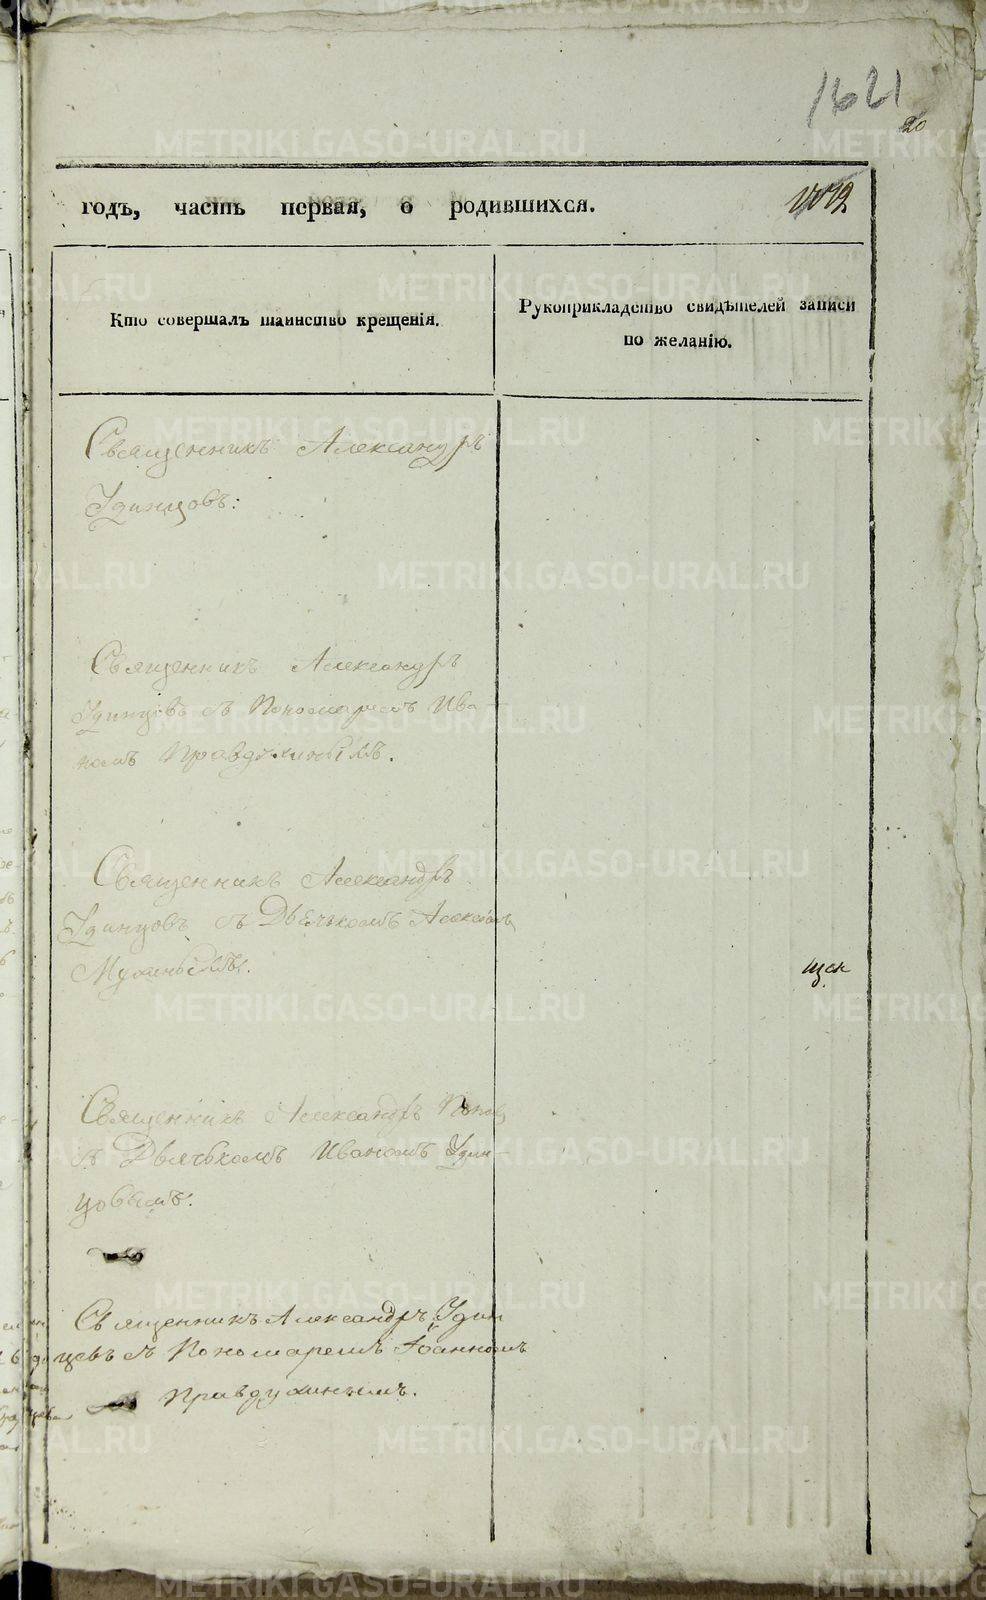 1621
20
годъ, часть первая, о родившихся.
Кто совершалъ таинство крещенія.
Рукоприкладство свидѣтелей записи
по желанію.
Священникъ Александръ
Удинцовъ:
Священникъ Александръ
Удинцовъ съ Пономаремъ Ива-
номъ Правдухинымъ.
Священникъ Александръ
Удинцовъ съ Дьячькомъ
Мухинымъ.
Священникъ Александръ Попов
съ Дьячькомъ Иваномъ Удин-
цовымъ.
Священникъ Александръ Удин
цевъ съ Пономаремъ Іоанномъ
Правдухинымъ.
METRIKI.GASO-URAL.RU